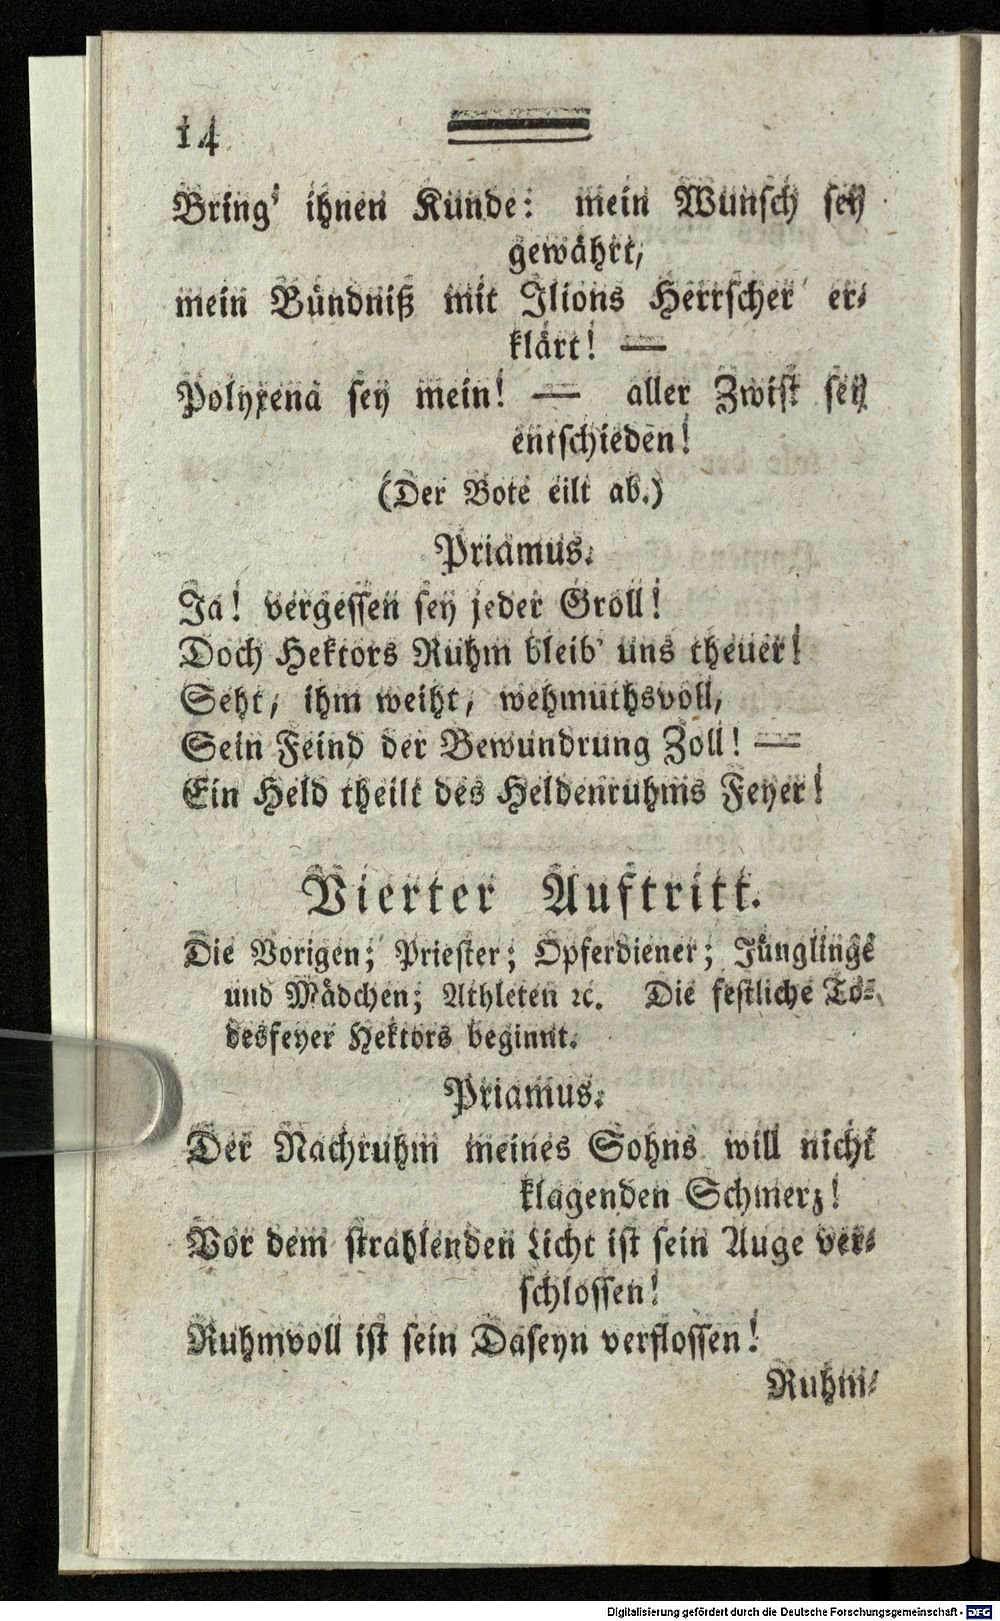 14
Bring' ihnen Kunde: mein Wunsch sey
gewährt,
mein Bündniß mit Ilions Herrscher er-
klärt! —
Polyxena sey mein! — aller Zwist sey
entschieden!
(Der Bote eilt ab.)
Priamus.
Ja! vergessen sey jeder Groll!
Doch Hektors Ruhm bleib' uns theuer!
Seht, ihm weiht, wehmuthsvoll,
Sein Feind der Bewundrung Zoll! —
Ein Held theilt des Heldenruhms Feyer!
Vierter Auftritt.
Die Vorigen; Priester; Opferdiener; Jünglinge
und Mädchen; Athleten ꝛc. Die festliche To-
desfeyer Hektors beginnt.
Priamus.
Der Nachruhm meines Sohns will nicht
klagenden Schmerz!
Vor dem strahlenden Licht ist sein Auge ver-
schlossen!
Ruhmvoll ist sein Daseyn verflossen!
Ruhm-
Digitalisierung gefördert durch die Deutsche Forschungsgemeinschaft - DFG